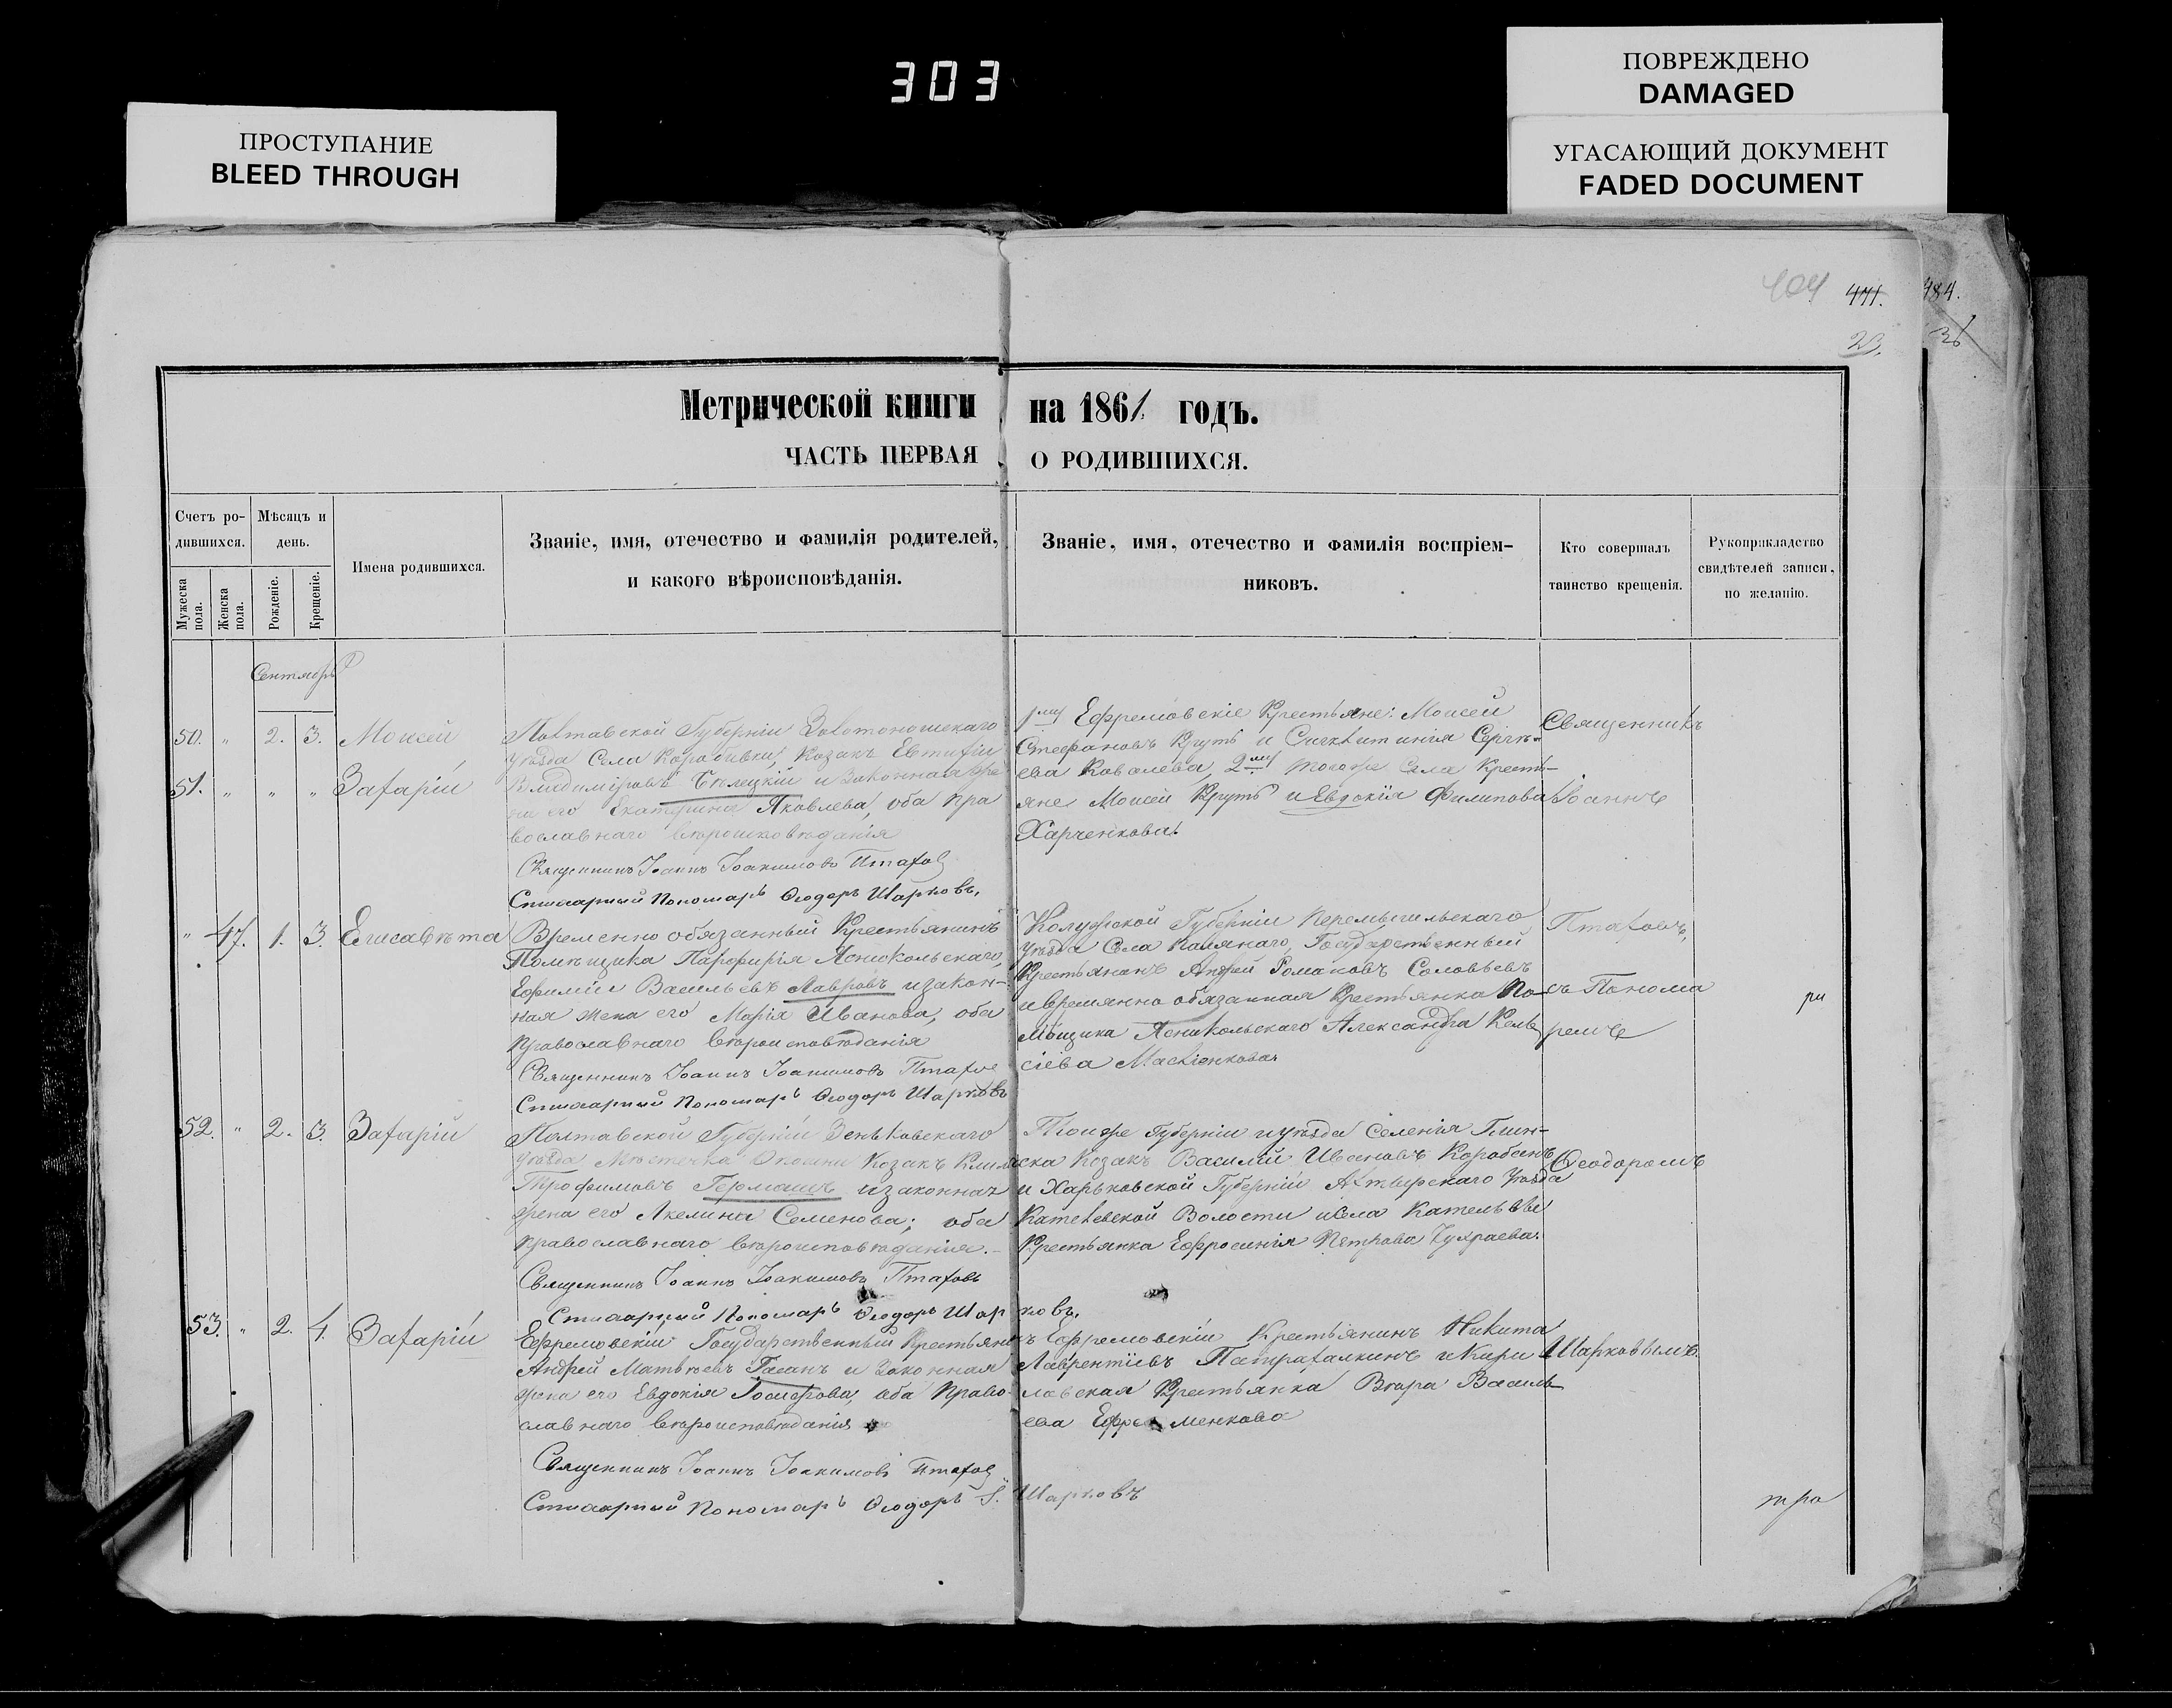 303
ПРОСТУПАНИЕ
BLEED THROUGH
ПОВРЕЖДЕНО
DAMAGED
УГАСАЮЩИЙ ДОКУМЕНТ
FADED DOCUMENT
404 471. 484.
29. 36
Метрической книги на 1861. годъ.
ЧАСТЬ ПЕРВАЯ О РОДИВШИХСЯ.
Счетъ ро-
дившихся.
Мужеска пола.
Женска пола.
Мѣсяцъ и
день.
Рожденіе.
Крещеніе.
Имена родившихся.
Званіе, имя, отечество и фамилія родителей,
и какого вѣроисповѣданія.
Званіе, имя, отечество и фамилія воспріем-
никовъ.
Кто совершалъ
таинство крещенія.
Рукоприкладство
свидѣтелей записи,
по желанію.
Сентябрь
50. " 2. 3. Моисей
51. " " " Захарій
Полтавской Губерніи Золотоношскаго
уѣзда Села Коробивки, Козакъ Евтифій
Владиміровъ Бѣлецкій и Законная же
на его Екатерина Яковлева, оба пра
вославнаго вѣроисповѣданія
Священникъ Іоаннъ Іоакимовъ Птахов
Пономарь Ѳеодоръ Шарковъ.
Ефремовскіе Крестьяне: Моисей
Стефановъ Крутъ и
ева Ковалева, 2 тогоже Села Кресть-
яне Моисей Крутъ и Евдокія Филипова
Харченкова.
Священникъ
Іоаннъ
" 47. 1. 3. Елисавѣта
Временно обязанный Крестьянинъ
Помѣщика Парфирія
Ефимій Васильевъ Лавровъ и закон-
ная жена его Марія Иванова, оба
православнаго вѣроисповѣданія
Священникъ Іоаннъ Іоакимовъ Птахов
Пономарь Ѳеодоръ Шарковъ
Калужской Губерніи Перемышльскаго
уѣзда Села Государственный
Крестьянинъ Андрей Романовъ Соловьевъ
и временно обязанная Крестьянка По-
мѣщика Александра
сіева
Птаховъ,
съ Понома
ремъ
ри
52. " 2. 3. Захарій
Полтавской Губерніи Зеньковскаго
уѣзда Мѣстечка Опошни Козакъ
Трофимовъ и законная
жена его Акелина Семенова; оба
православнаго вѣроисповѣданія.-
Священникъ Іоаннъ Іоакимовъ Птаховъ
Пономарь Ѳеодоръ Шарковъ.
Тоиже Губерніи и уѣзда Селенія Глин-
ска Козакъ Василій Ивановъ
и Харьковской Губерніи Ахтырскаго Уѣзда
Волости и Села
Крестьянка Ефросинія Петрова
Ѳеодоромъ
53. " 2. 4. Захарій
Ефремовскій Государственный Крестьянинъ
Андрей Матвѣевъ и Законная
жена его Евдокія оба Право-
славнаго вѣроисповѣданія
Священникъ Іоаннъ Іоакимовъ Птахов
Пономарь Ѳеодоръ Шарковъ
Ефремовскій Крестьянинъ Никита
Лаврентіевъ и Кири
ловская Крестьянка Вѣра Василь
ева Ефременкова
Шарковымъ.
тра